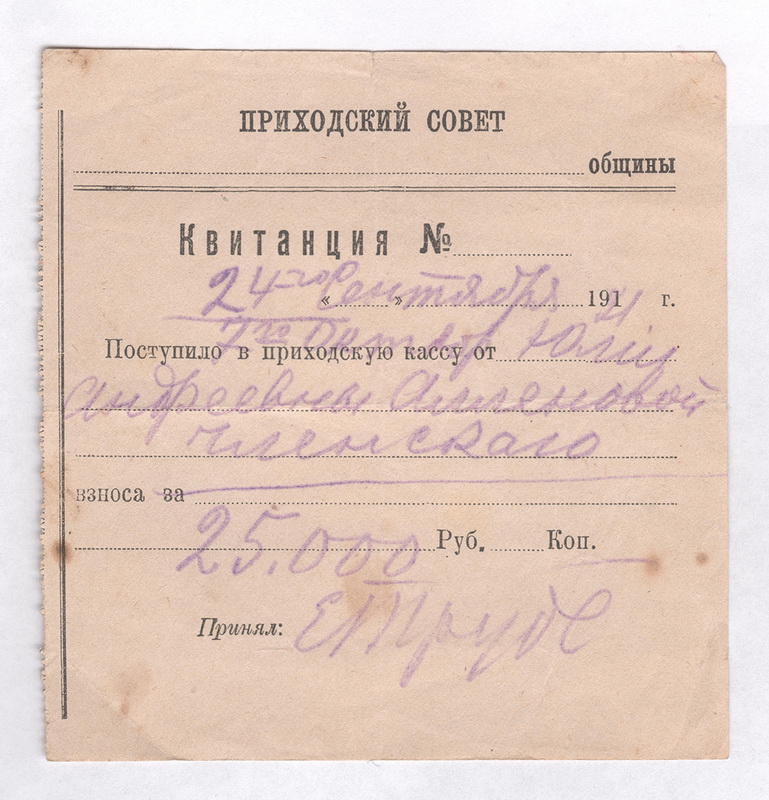 ПРИХОДСКИЙ СОВЕТ
общины
Квитанция №
24го Сентября 191 г.
Поступило в приходскую кассу от Юлии
Андреевны
членскаго
взноса за
25.000 Руб. Коп.
Принял: